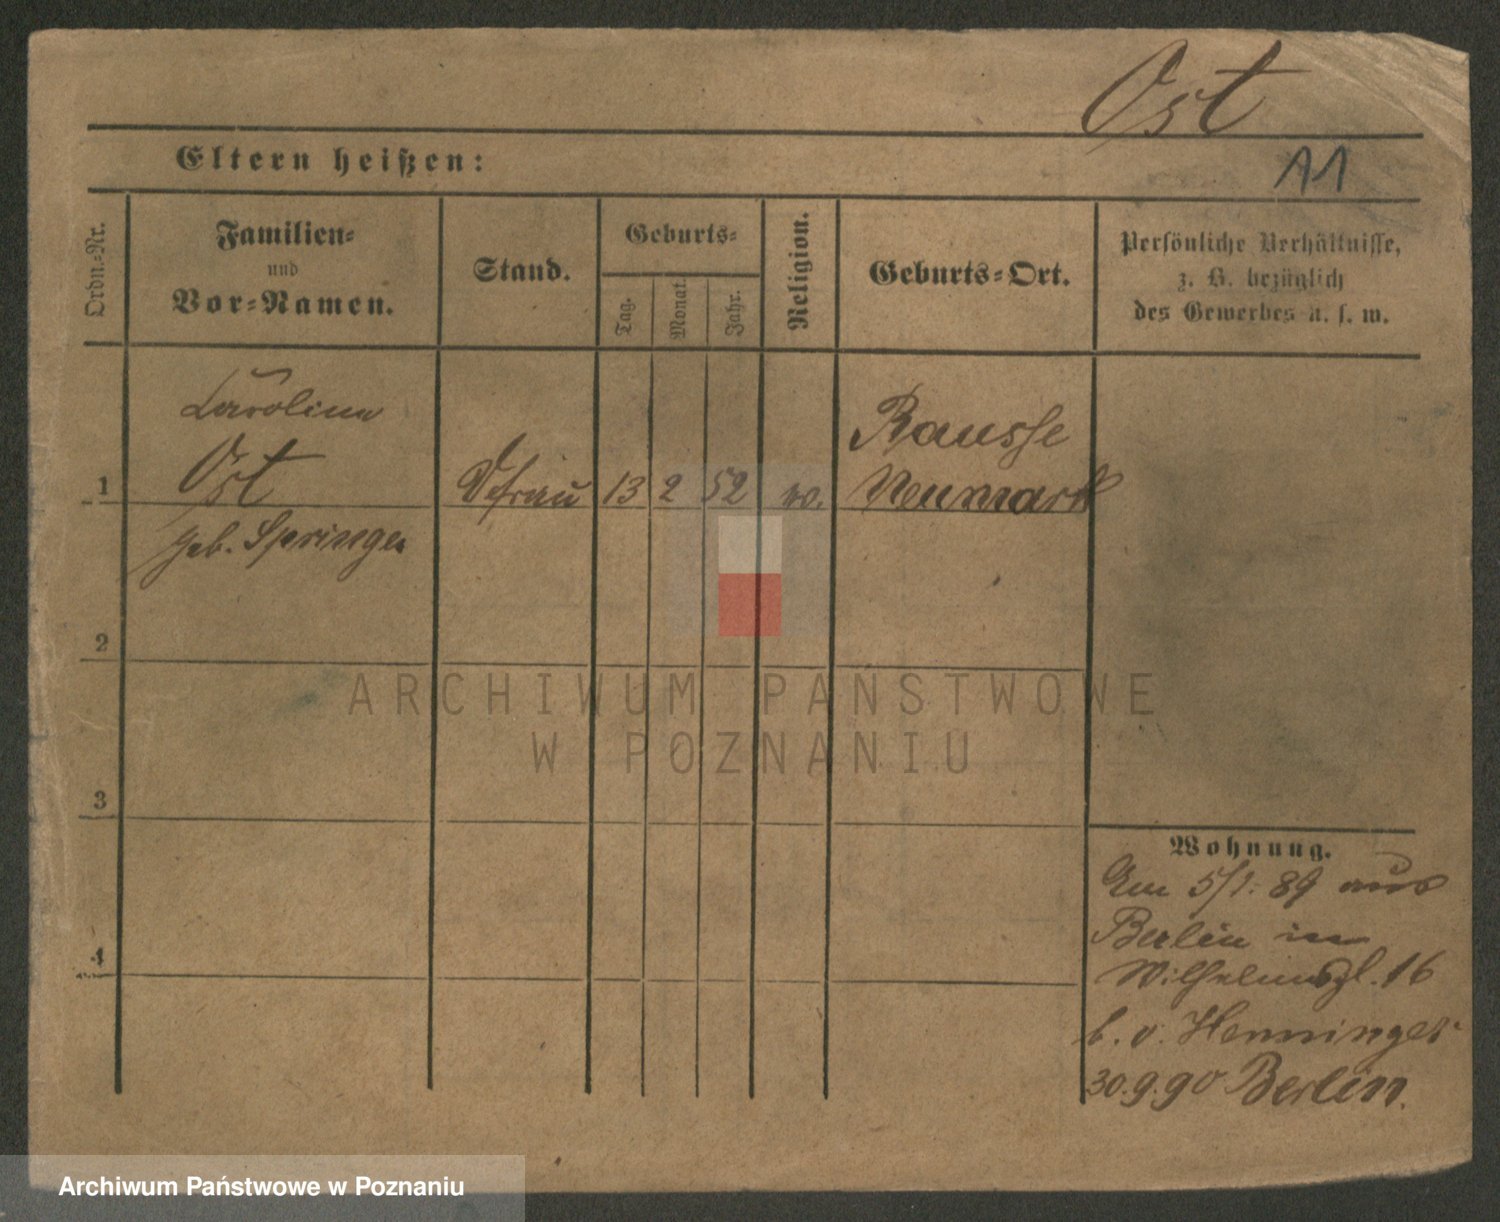 Ost
Eltern heißen:
11
Ordn.-Nr.
Familien-
und
Vor-Namen.
Stand.
Geburts-
Tag.
Monat.
Jahr.
Religion.
Geburts-Ort.
Persönliche Verhältnisse,
z. B. bezüglich
des Gewerbes u. s. w.
Caroline
1 Ost
geb. Springer
13 2 52
Neumark
2
3
4
Wohnung.
Am 5/1. 89 aus
Berlin in
Wilhelmspl. 16
b. v. Henninges
30.9.90 Berlin.
ARCHIWUM PAŃSTWOWE
W POZNANIU
Archiwum Państwowe w Poznaniu